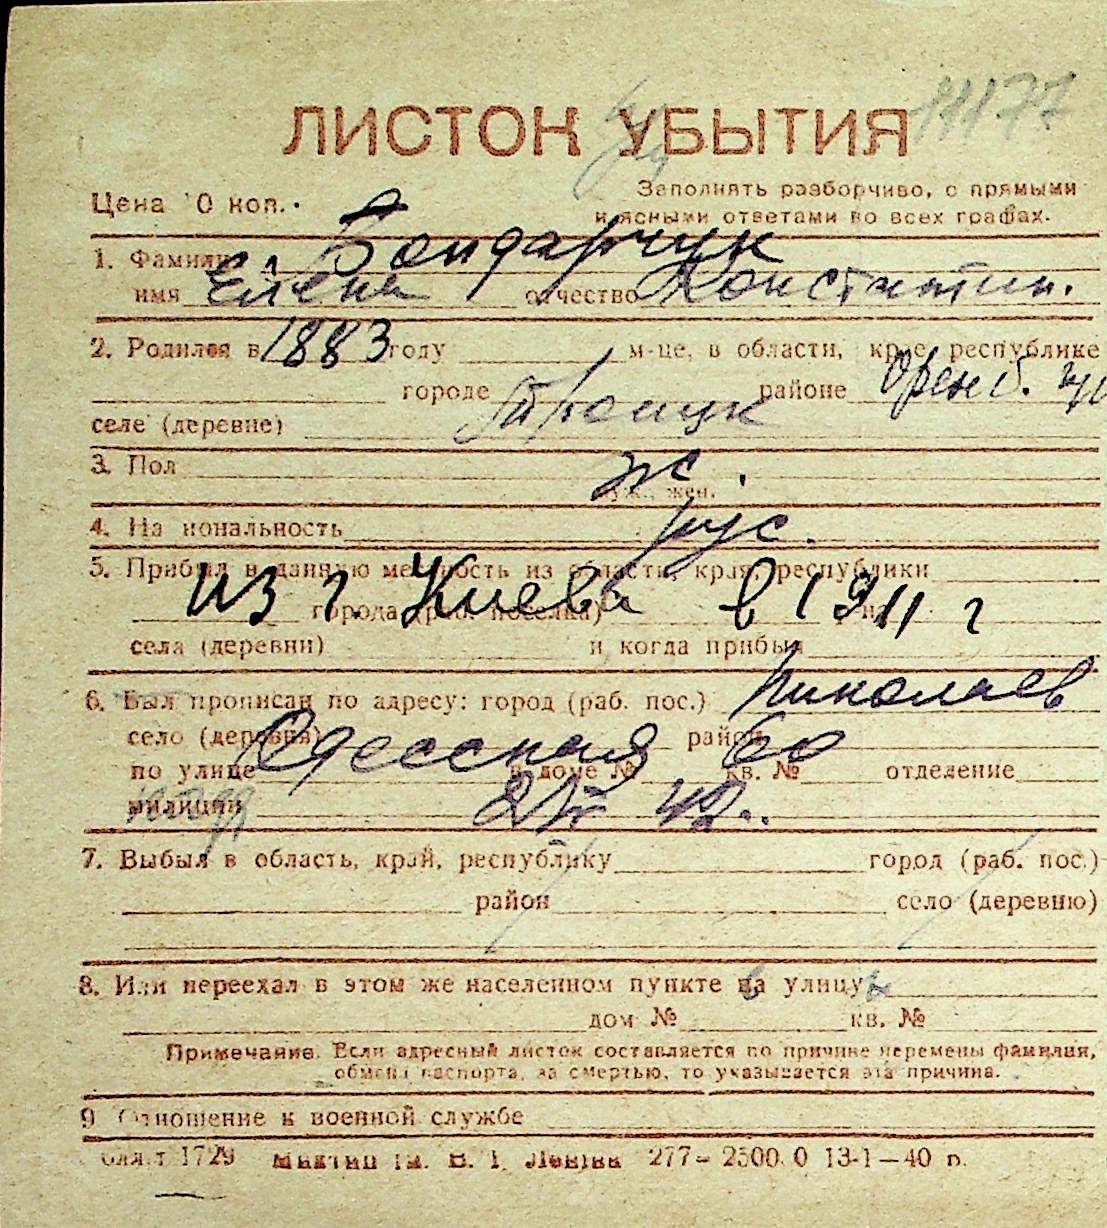 11177
ЛИСТОК УБЫТИЯ
Цена 0 коп.
Заполнять разборчиво, с прямыми
и ясными ответами во всех графах.
1. Фамилия Бондарчук
имя Елена отчество Константин.
2. Родился в 1883 году м-це, в области, крае, республике
городе Троицк районе Оренб. гу
селе (деревне)
3. Пол ж.
муж., жен.
4. Национальность рус.
5. Прибыл в данную местность из области, края, республики
из г. Киева в 1911 г
города (раб. поселка)
села (деревни) и когда прибыл
6. Был прописан по адресу: город (раб. пос.) Николаев
село (деревня) район
по улице Одесская в доме № 60 кв. № отделение
милиции 42.
7. Выбыл в область, край, республику город (раб. пос.)
район село (деревню)
8. Или переехал в этом же населенном пункте на улицу
дом № кв. №
Примечание. Если адресный листок составляется по причине перемены фамилии,
обмена паспорта, за смертью, то указывается эта причина.
9 Отношение к военной службе
1729 им. В. І. Леніна 277— 2500 0 13-1—40 р.